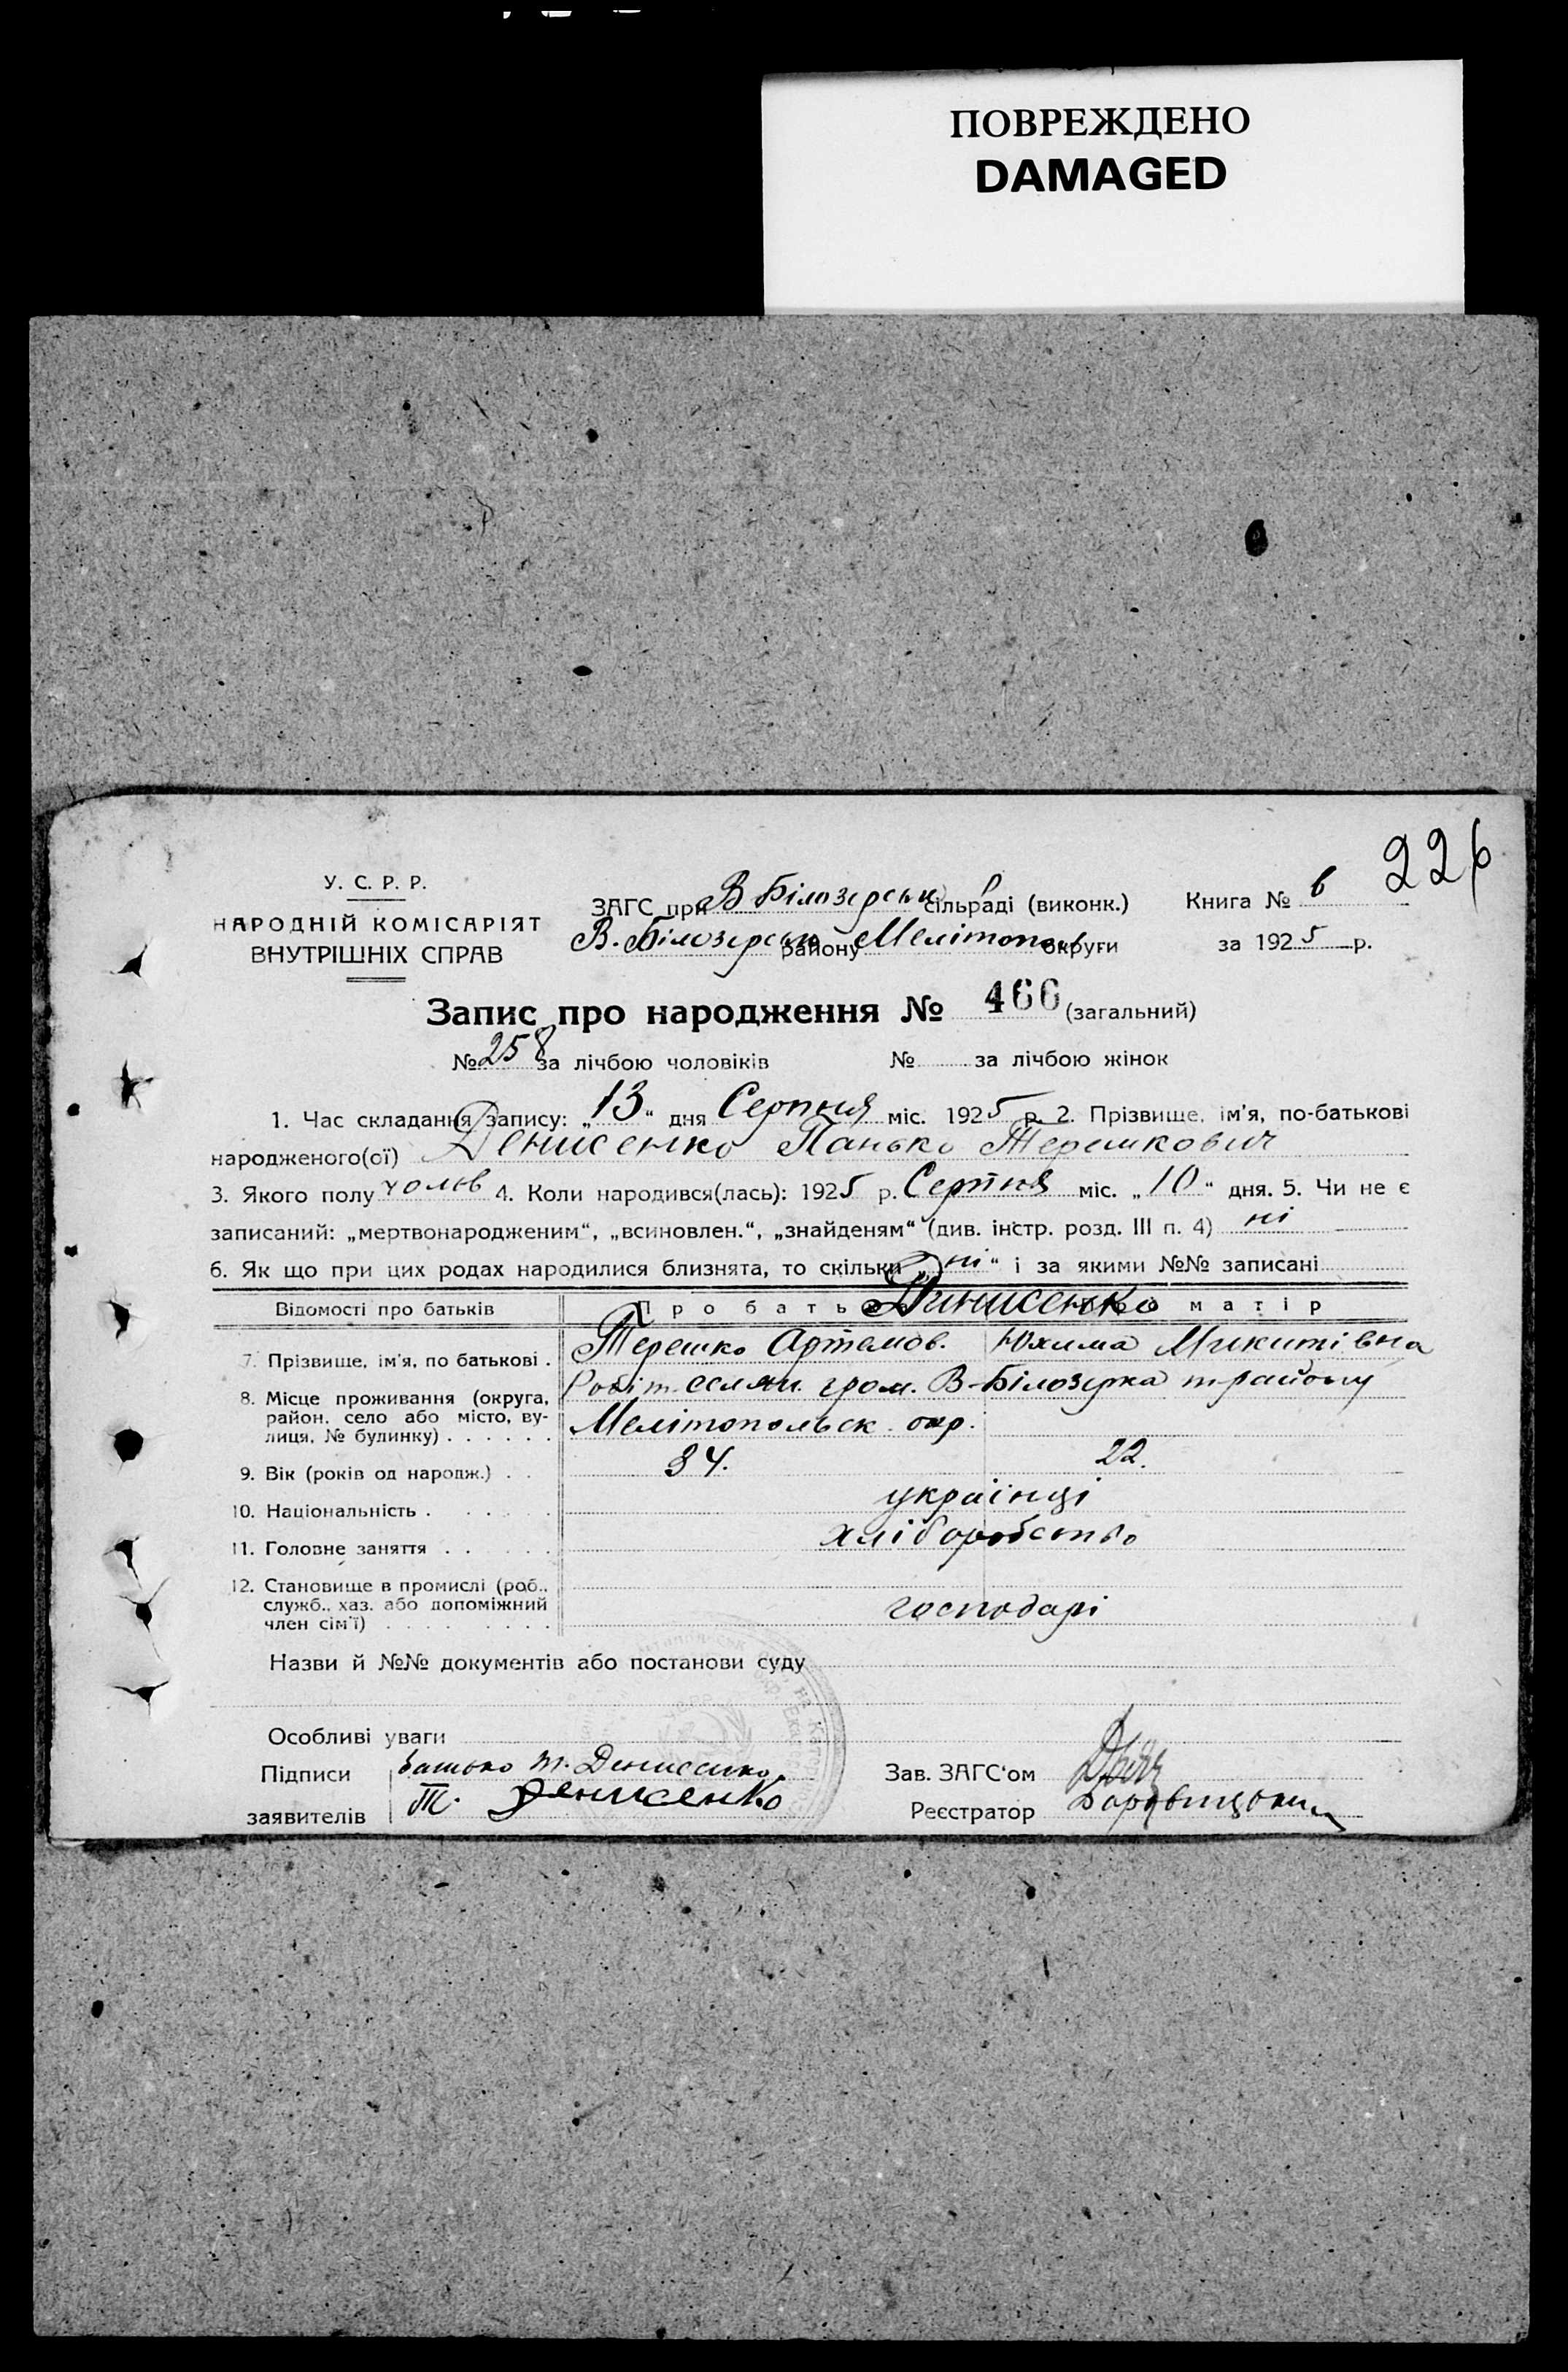 ПОВРЕЖДЕНО
DAMAGED
226
У. С. Р. Р.
НАРОДНІЙ КОМІСАРІЯТ
ВНУТРІШНІХ СПРАВ
ЗАГС при В Білозерськ сільраді (виконк.) Книга № 6
В. Білозерськ району Мелітопол округи за 1925 р.
Запис про народження № 466 (загальний)
№ 258 за лічбою чоловіків № за лічбою жінок
1. Час складання запису: „13“ дня Серпня міс. 1925 р. 2. Прізвище, ім'я, по-батькові
народженого(ої) Денисенко Панько Терешкович
3. Якого полу чолов 4. Коли народився(лась): 1925 р. Серпня міс. „10“ дня. 5. Чи не є
записаний: „мертвонародженим“, „всиновлен.“, „знайденям“ (див. інстр. розд. III п. 4) ні
6. Як що при цих родах народилися близнята, то скільки „ні“ і за якими №№ записані
Відомості про батьків Про батька матір
Динисенко
7. Прізвище, ім'я, по батькові . Терешко Артемов. Юхима Микитівна
8. Місце проживання (округа, район, село або місто, ву-лиця, № будинку) . . . . . . Робіт. селян. гром. В-Білозерка т району
Мелітопольск. окр.
9. Вік (років од народж.) . . 34. 22.
10. Національність . . . . . . українці
11. Головне заняття . . . . . хліборобство
12. Становище в промислі (роб.,
служб., хаз. або допоміжний
член сім'ї) . . . . . . . . господарі
Назви й №№ документів або постанови суду
Особливі уваги
Підписи батько Т. Денисенко Зав. ЗАГС'ом
заявителів Т. Денисенко Реєстратор